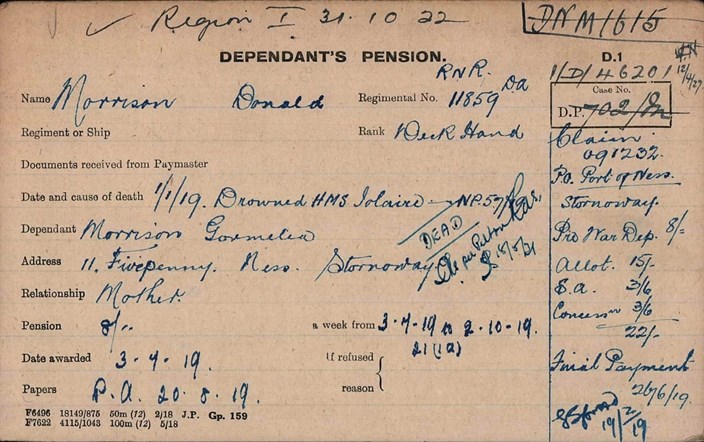 ✓ Region I 31.10.22
DNM1615
DEPENDANT'S PENSION.
D.1
12/4/27.
1/D/46201
R.N.R.
Name Morrison Donald
Regimental No. 11859 DA
Case No.
D.P. 702/M
Regiment or Ship
Rank Deck Hand
Claim
091232.
Documents received from Paymaster
P.O. Port of Ness.
Stornoway.
Date and cause of death 1/1/19. Drowned HMS Iolaire
Dependant Morrison Gormelia
DEAD
Pre War Dep. 8/-
Address 11. Fivepenny. Ness. Stornoway.
Allot. 15/-
Relationship Mother.
S.A. 3/6
Concession 3/6
22/-
Pension 8/-
a week from 3-4-19 to 2-10-19.
21(1a)
Date awarded 3-4-19.
If refused
reason
Final Payment
26/6/19.
Papers P.A. 20.8.19.
19/2/19
F6496 18149/875 50m (12) 2/18 J.P. Gp. 159
F7622 4115/1043 100m (12) 5/18